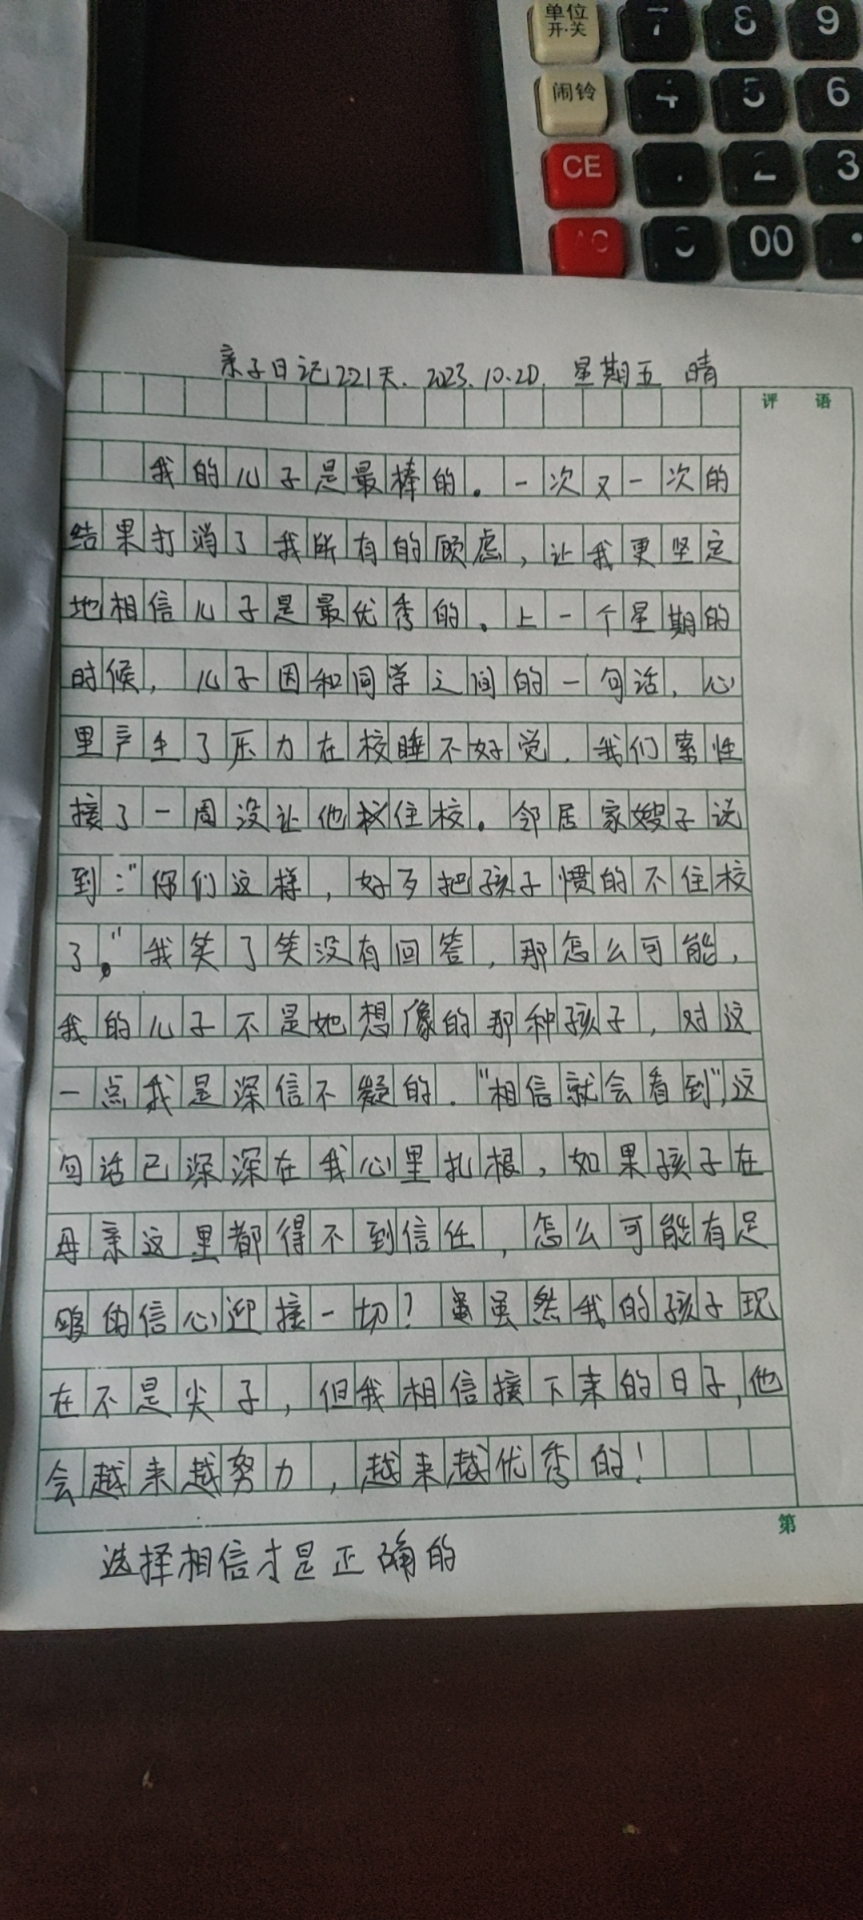 单位
开·关
7
8
9
闹铃
4
5
6
CE
2
3
AC
00
亲子日记221天. 2023.10.20. 星期五 晴
评 语
我的儿子是最棒的。一次又一次的
结果打消了我所有的顾虑，让我更坚定
地相信儿子是最优秀的。上一个星期的
时候，儿子因和同学之间的一句话，心
里产生了压力在校睡不好觉，我们索性
接了一周没让他住校。邻居家嫂子说
到："你们这样，好歹把孩子惯的不住校
了。"我笑了笑没有回答，那怎么可能，
我的儿子不是她想像的那种孩子，对这
一点我是深信不疑的。"相信就会看到"，这
句话已深深在我心里扎根，如果孩子在
母亲这里都得不到信任，怎么可能有足
够的信心迎接一切？虽然我的孩子现
在不是尖子，但我相信接下来的日子，他
会越来越努力，越来越优秀的！
第
选择相信才是正确的